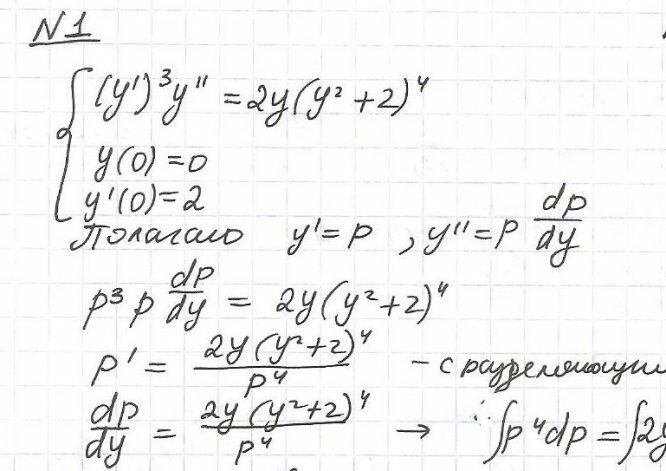 N1
(y')³y" = 2y(y² + 2)⁴
y(0) = 0
y'(0) = 2
Полагаю y' = p , y" = p dp/dy
p³ p dp/dy = 2y(y² + 2)⁴
p' = 2y(y² + 2)⁴/p⁴ - с разделяющи
dp/dy = 2y(y² + 2)⁴/p⁴ → ∫p⁴dp = ∫2y